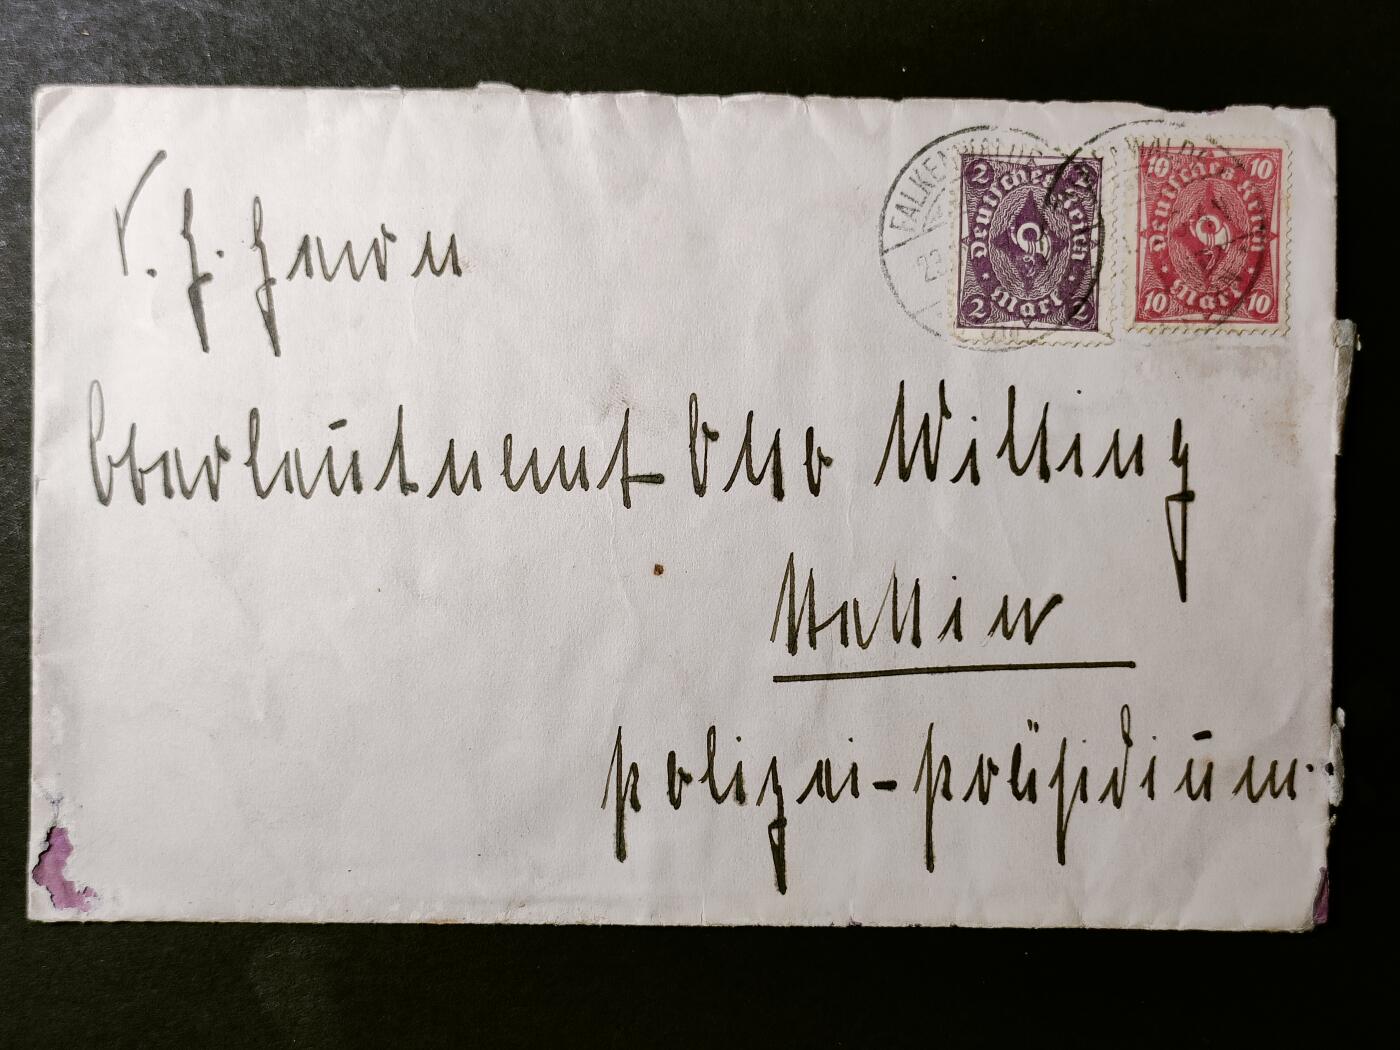 FALKENWALDE
2 Deutsches Reich 2
2 Mark 2
10 Deutsches Reich 10
10 Mark 10
S. H. Herrn
Oberleutnant Otto Willing
Stettin
Polizei-Präsidium.